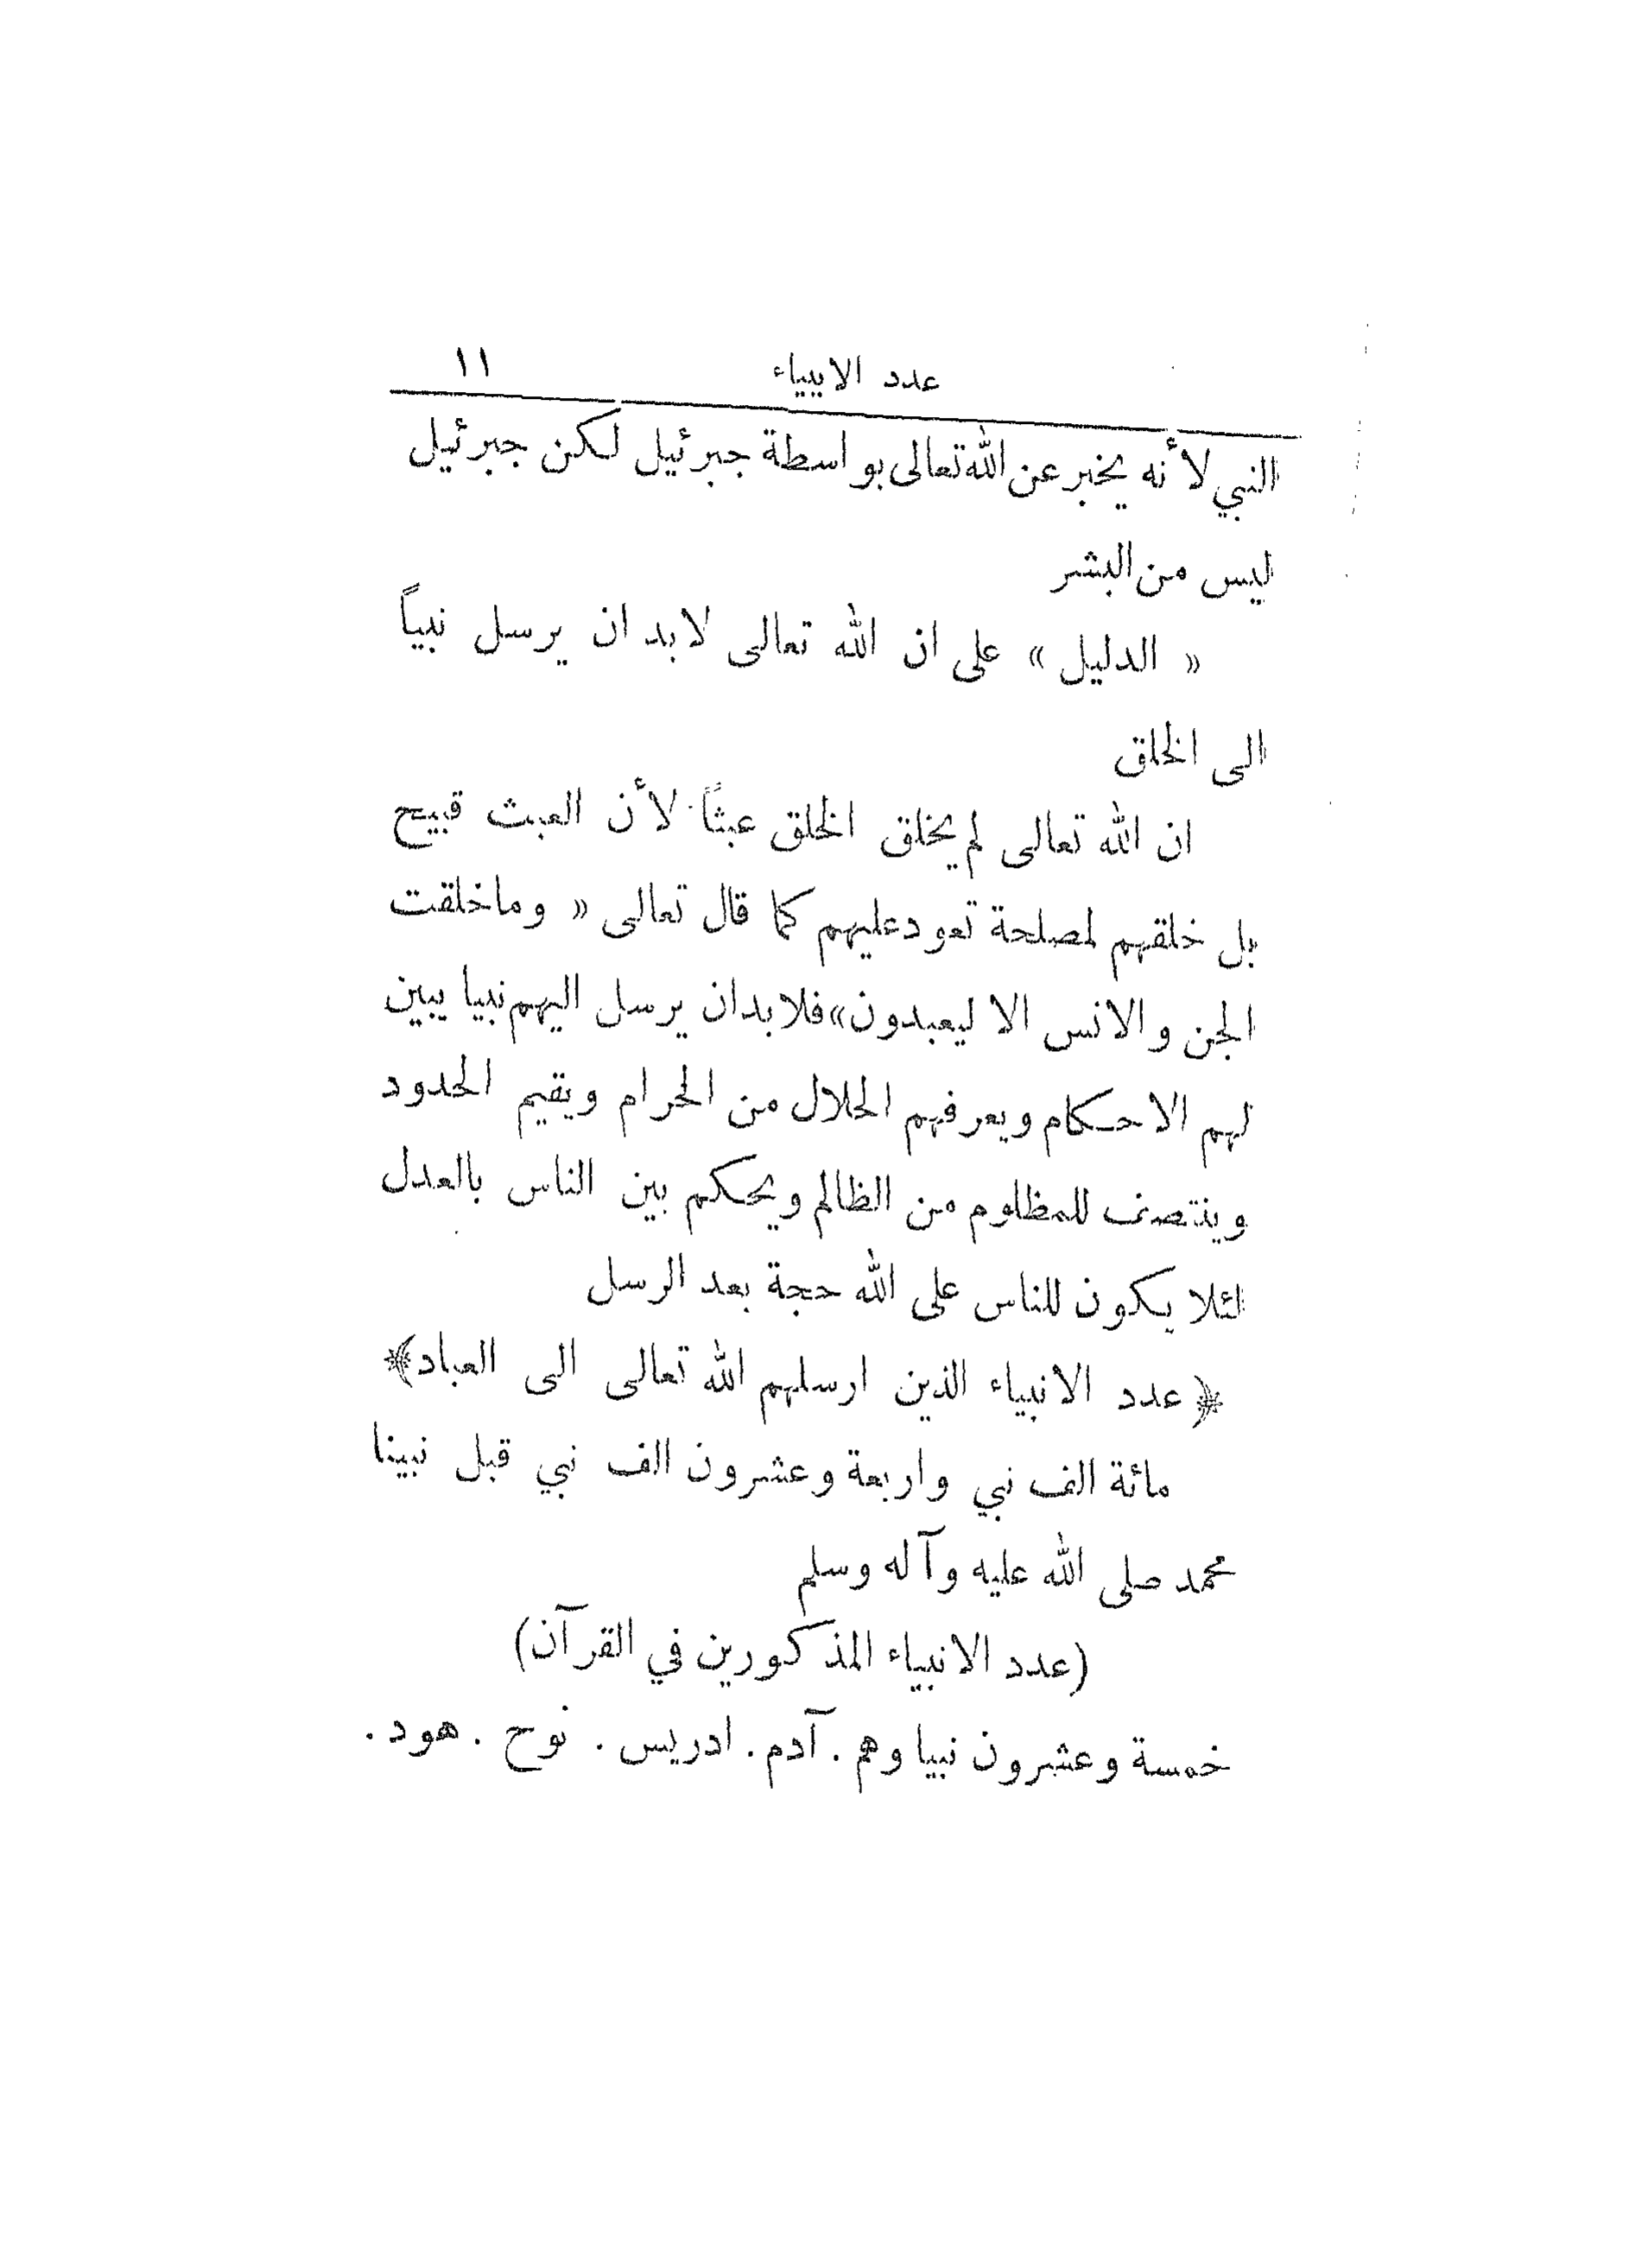 عدد الانبياء ١١
النبي لأنه يخبر عن الله تعالى بواسطة جبرئيل لكن جبرئيل
ليس من البشر
« الدليل » على ان الله تعالى لابد ان يرسل نبياً
الى الخلق
ان الله تعالى لم يخلق الخلق عبثاً لأن العبث قبيح
بل خلقهم لمصلحة تعود عليهم كما قال تعالى « وما خلقت
الجن والانس الا ليعبدون» فلا بد ان يرسل اليهم نبيا يبين
لهم الاحكام ويعرفهم الحلال من الحرام ويقيم الحدود
وينتصف للمظلوم من الظالم ويحكم بين الناس بالعدل
لئلا يكون للناس على الله حجة بعد الرسل
﴿عدد الانبياء الذين ارسلهم الله تعالى الى العباد﴾
مائة الف نبي واربعة وعشرون الف نبي قبل نبينا
محمد صلى الله عليه وآله وسلم
(عدد الانبياء المذكورين في القرآن)
خمسة وعشرون نبيا وهم . آدم . ادريس . نوح . هود .